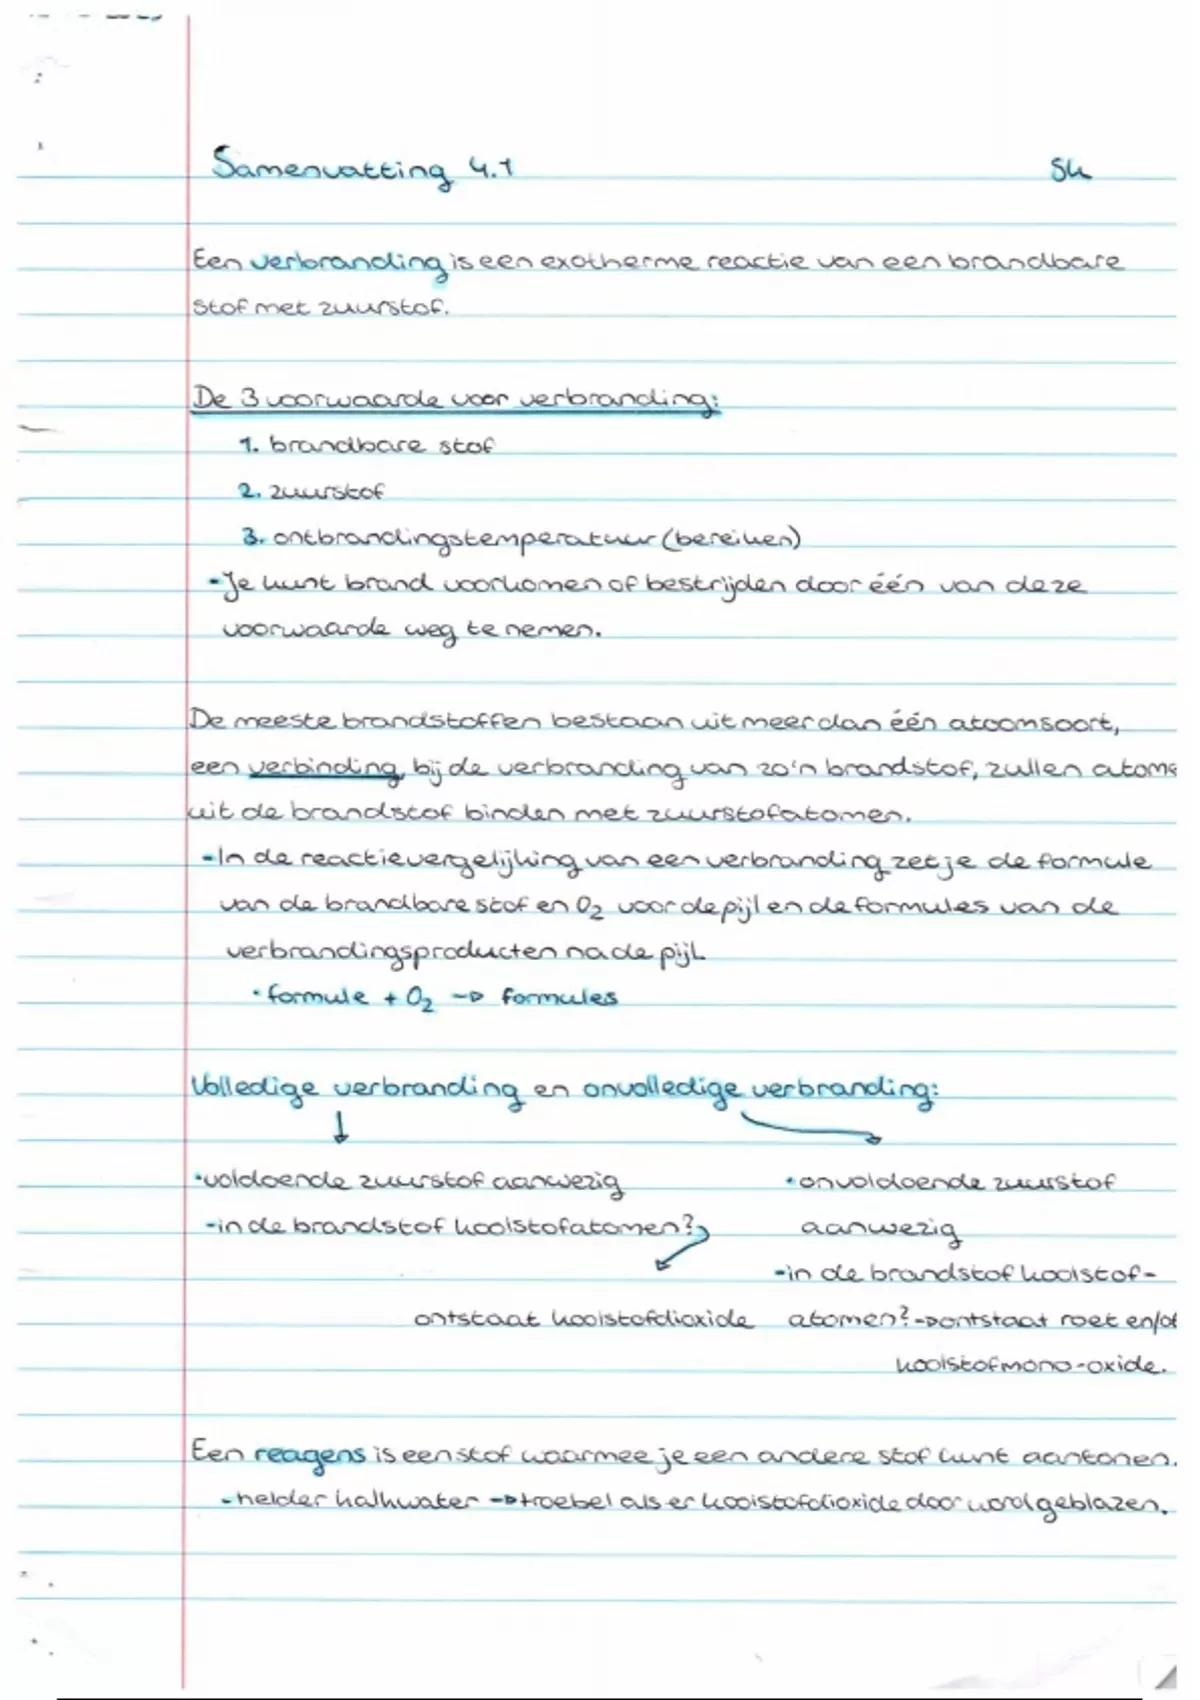 Samenvatting 4.1 Sk
Een verbranding is een exotherme reactie van een brandbare
stof met zuurstof.
De 3 voorwaarde voor verbranding:
1. brandbare stof
2. zuurstof
3. ontbrandingstemperatuur (bereiken)
-Je kunt brand voorkomen of bestrijden door één van deze
voorwaarde weg te nemen.
De meeste brandstoffen bestaan uit meer dan één atoomsoort,
een verbinding, bij de verbranding van zo'n brandstof, zullen atome
uit de brandstof binden met zuurstofatomen.
-In de reactievergelijking van een verbranding zet je de formule
van de brandbare stof en O₂ voor de pijl en de formules van de
verbrandingsproducten na de pijl
• formule + O₂ → formules
Volledige verbranding en onvolledige verbranding:
•voldoende zuurstof aanwezig
-in de brandstof koolstofatomen?
ontstaat koolstofdioxide
•onvoldoende zuurstof
aanwezig
-in de brandstof koolstof-
atomen?→ontstaat roet en/of
koolstofmono-oxide.
Een reagens is een stof waarmee je een andere stof kunt aantonen.
-helder kalkwater →troebel als er koolstofdioxide door word geblazen.